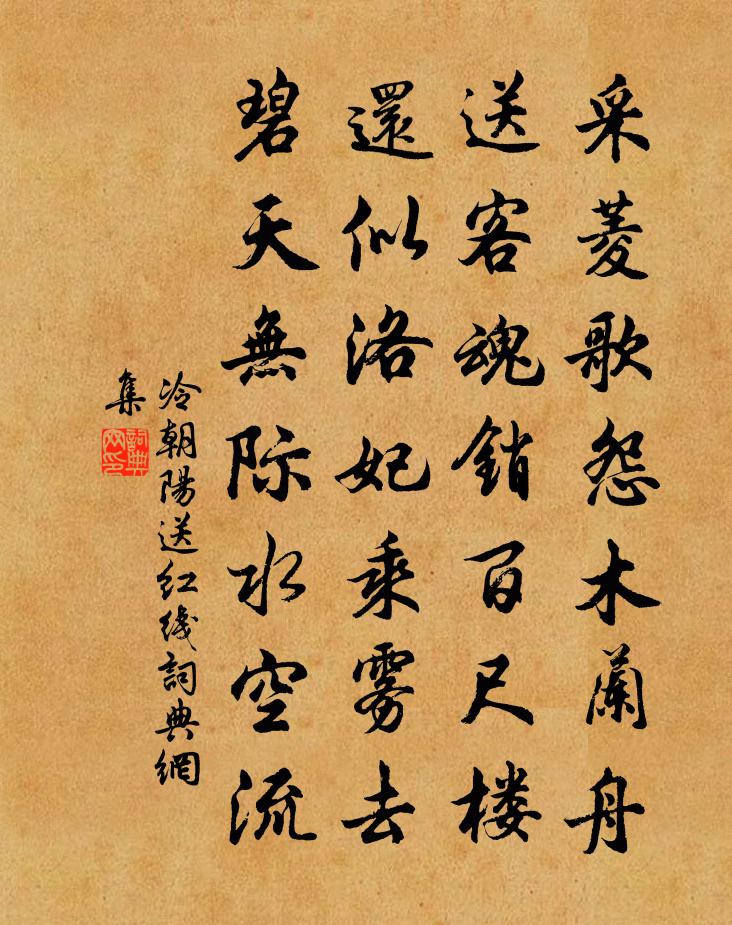 采菱歌怨木蘭舟
送客魂銷百尺楼
還似洛妃乘雾去
碧天無际水空流
冷朝陽送红线詞典網
集
詞典
网印